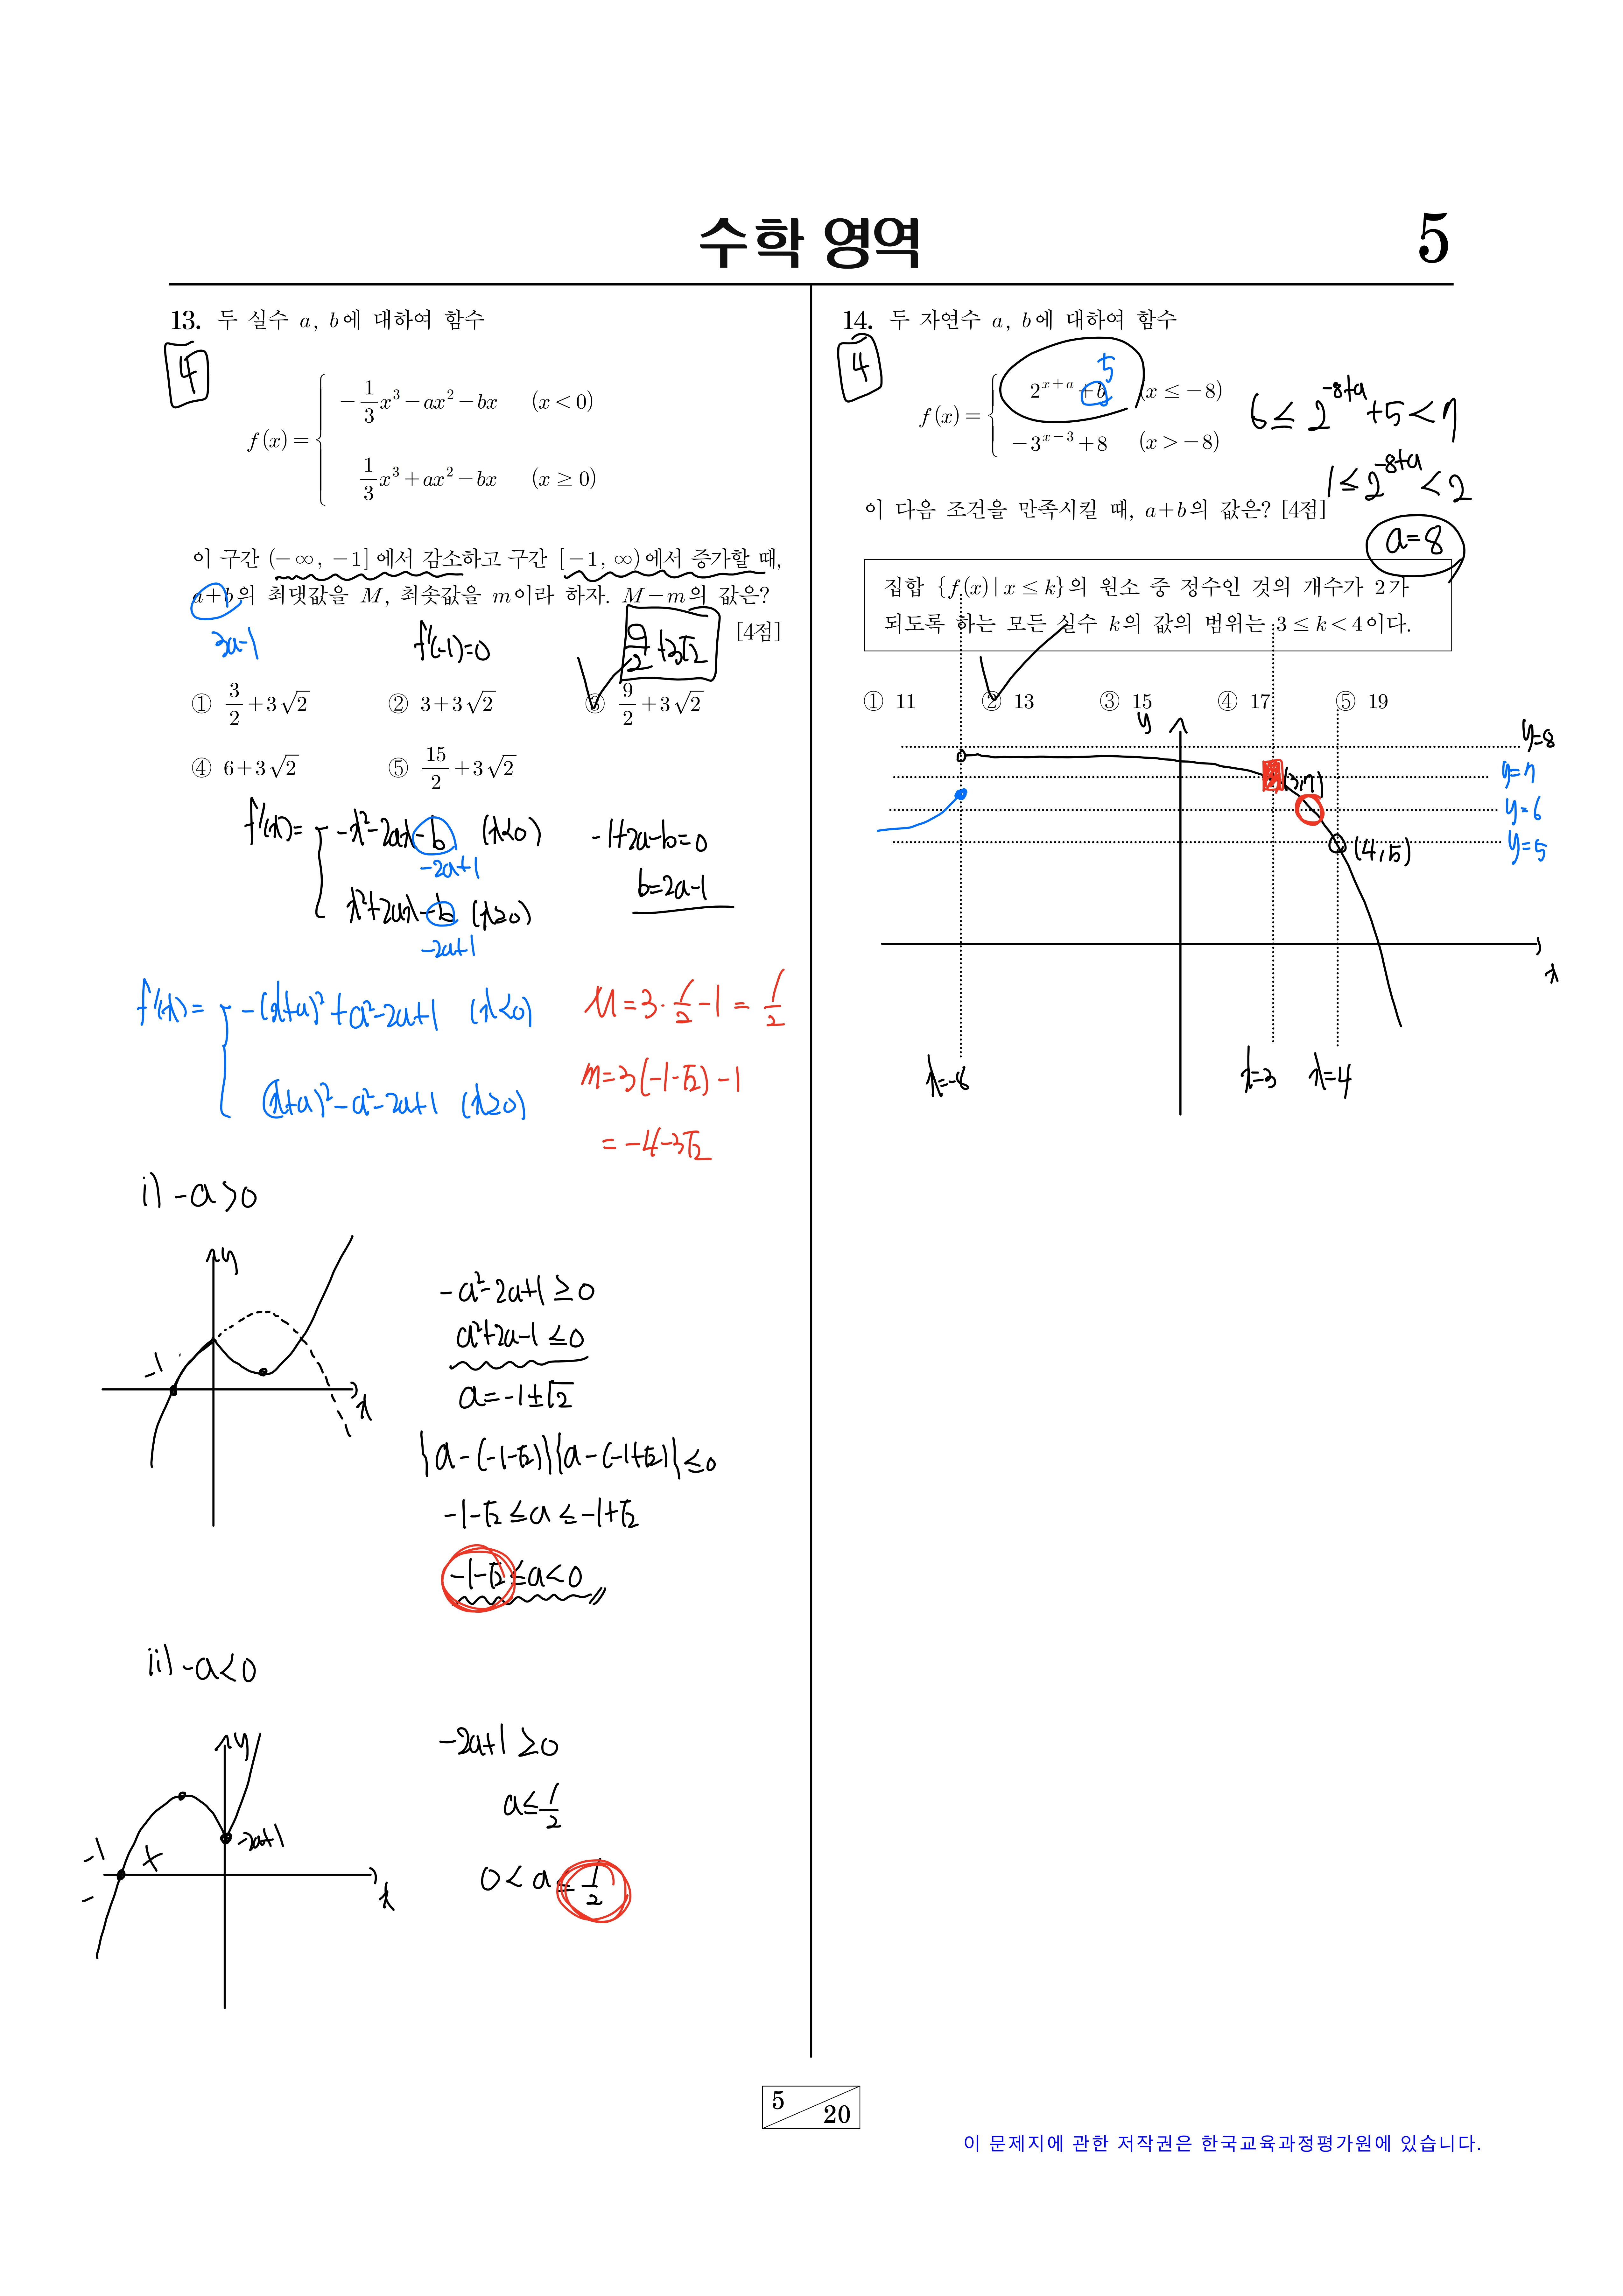 수학 영역
5
13. 두 실수 a, b에 대하여 함수
4
f(x) = { -1/3 x³ - ax² - bx (x < 0)
1/3 x³ + ax² - bx (x ≥ 0)
이 구간 (-∞, -1]에서 감소하고 구간 [-1, ∞)에서 증가할 때,
a+b의 최댓값을 M, 최솟값을 m이라 하자. M-m의 값은?
[4점]
3a-1
f'(-1)=0
9/2+3√2
① 3/2+3√2 ② 3+3√2 ③ 9/2+3√2
④ 6+3√2 ⑤ 15/2+3√2
f'(x)= { -x²-2ax-b (x<0)
-2a+1
x²+2ax-b (x≥0)
-2a+1
-1+2a-b=0
b=2a-1
f'(x)= { -(x+a)²+a²-2a+1 (x<0)
(x+a)²-a²-2a+1 (x≥0)
M=3·1/2-1=1/2
m=3(-1-√2)-1
=-4-3√2
i) -a>0
y
-1
x
-a²-2a+1≥0
a²+2a-1≤0
a=-1±√2
{a-(-1-√2)}{a-(-1+√2)}≤0
-1-√2≤a≤-1+√2
-1-√2≤a<0
ii) -a<0
y
-1
-2a+1
x
-2a+1≥0
a≤1/2
0<a≤1/2
14. 두 자연수 a, b에 대하여 함수
4
f(x) = { 2^(x+a)+b (x ≤ -8)
-3^(x-3)+8 (x > -8)
5
6≤2^(-8+a)+5<7
1≤2^(-8+a)<2
a=8
이 다음 조건을 만족시킬 때, a+b의 값은? [4점]
집합 {f(x) | x ≤ k}의 원소 중 정수인 것의 개수가 2가
되도록 하는 모든 실수 k의 값의 범위는 3 ≤ k < 4이다.
① 11 ② 13 ③ 15 ④ 17 ⑤ 19
y
y=8
y=7
(3,7)
y=6
y=5
(4,5)
x
x=-8
x=3
x=4
5
20
이 문제지에 관한 저작권은 한국교육과정평가원에 있습니다.